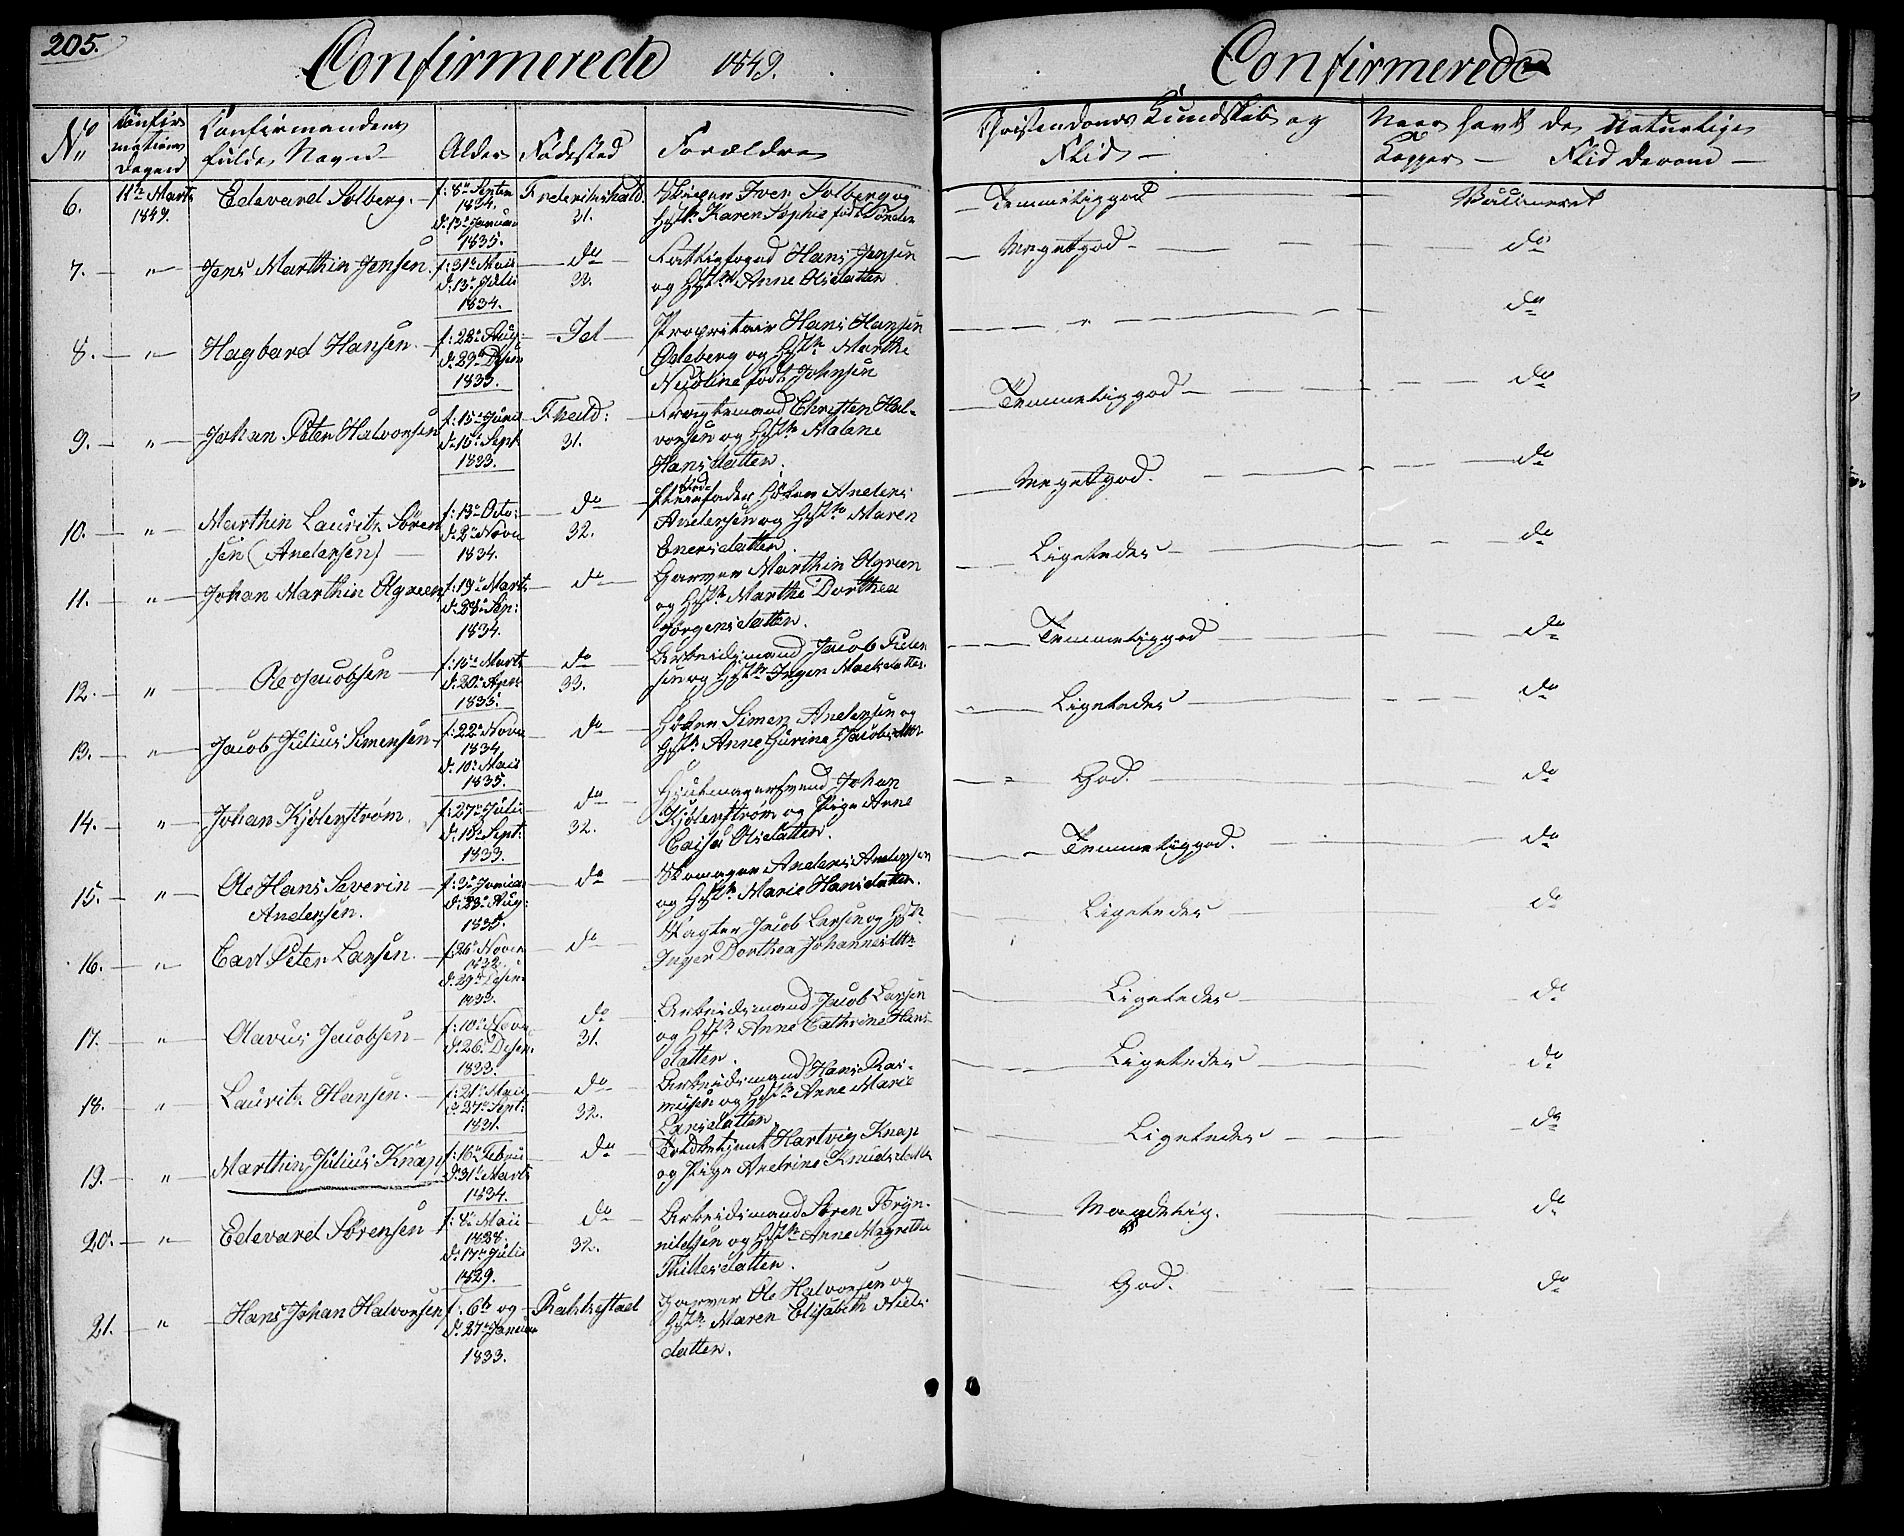 205.
Confirmerede 1849.
Confirmerede
No
Confir
mations
Dagen
Confirmandens
fulde Navn
Alder
Fødested
Forældre
Christendoms Kundskab og
Flid
Naar havt de Naturlige
Kopper — Flid derom —
6. 11te Marts 1849. Edevard Solberg. f: 8de Septem 1834. d: 13de Januar 1835. Frederikshald 31. Iver Solberg og
Hst. Karen Sophie født
Temmeliggod Vaccineret
7. " Jens Marthin Jensen f: 31te Mai d: 13de Juli 1834. do 32. Hans Jensen
og Hst. Anne Olsdatter
Megetgod do
8. " Hagbard Hansen f: 22de Aug: d: 29de Desem 1833. Id Proprietair Hans Hansen
Ødeberg og Hst. Marthe
Nicoline født Johnsen
" do
9. " Johan Peter Halvorsen f: 15de Juni d: 15de Sept 1833. Fhald: 31. Christen Hal-
vorsen og Hst. Malene
Hansdatter.
Temmeliggod do
10. " Marthin Lauritz Søren
sen (Andersen) f: 13de Octo: d: 2de Novem 1834. do 32. Høker Anders
Andersen og Hst. Maren
Enersdatter.
Megetgod. do
11. " Johan Marthin Algreen f: 19de Marts d: 28de Sep: 1834. do Garver Marthin Algreen
og Hst. Marthe Dorthea
Jørgensdatter.
Ligeledes do
12. " Ole Jacobsen f: 15de Marts d: 20de Apri 1835. do 33. Arbeidsmand Jacob Peder
sen og Hst. Inger
Temmeliggod do
13. " Jacob Julius Simensen f: 22de Novem 1834. d: 10de Mai 1835. do Høker Simen Andersen og
Hst. Anne Gurine Jacobsdtr
Ligeledes do
14. " Johan Kjølerstrøm. f: 27de Juli d: 18de Sept: 1833. do 32. Johan
Kjølerstrøm og Pige Anne
Caisa Olsdatter.
God. do
15. " Ole Hans Severin
Andersen. f: 3de Januar d: 23de Aug: 1835. do Skomager Anders Andersen
og Hst. Marie Hansdatter.
Temmeliggod. do
16. " Carl Peter Larsen. f: 26de Novem 1832. d: 29de Desem 1833. do Slagter Jacob Larsen og Hst.
Inger Dorthea Johannesdtr
Ligeledes do
17. " Olavus Jacobsen f: 10de Novem d: 26de Desem. 1833. do 31. Arbeidsmand Jacob Larsen
og Hst. Anne Cathrine Hans-
datter.
Ligeledes do
18. " Lauritz Hansen. f: 21de Mai d: 27de Sept: 1831. do 32. Arbeidsmand Hans Ras-
musen og Hst. Anne Marie
Larsdatter
Ligeledes do
19. " Marthin Julius Knap f: 16de Febru d: 31te Marts 1834. do Toldbetjent Hartvig Knap
og Pige Andrine Knudsdatter
Ligeledes do
20. " Edevard Sørensen f: 8de Mai 1828. d: 17de Juli 1829. do 32. Arbeidsmand Søren Bryn-
nildsen og Hst. Anne Magrethe
Thillesdatter.
Maadelig. do
21. " Hans Johan Halvorsen f: 6te og d: 27de Januar 1833. Rakkestad Garver Ole Halvorsen og
Hst. Maren Elisabeth Niels
datter.
God. do